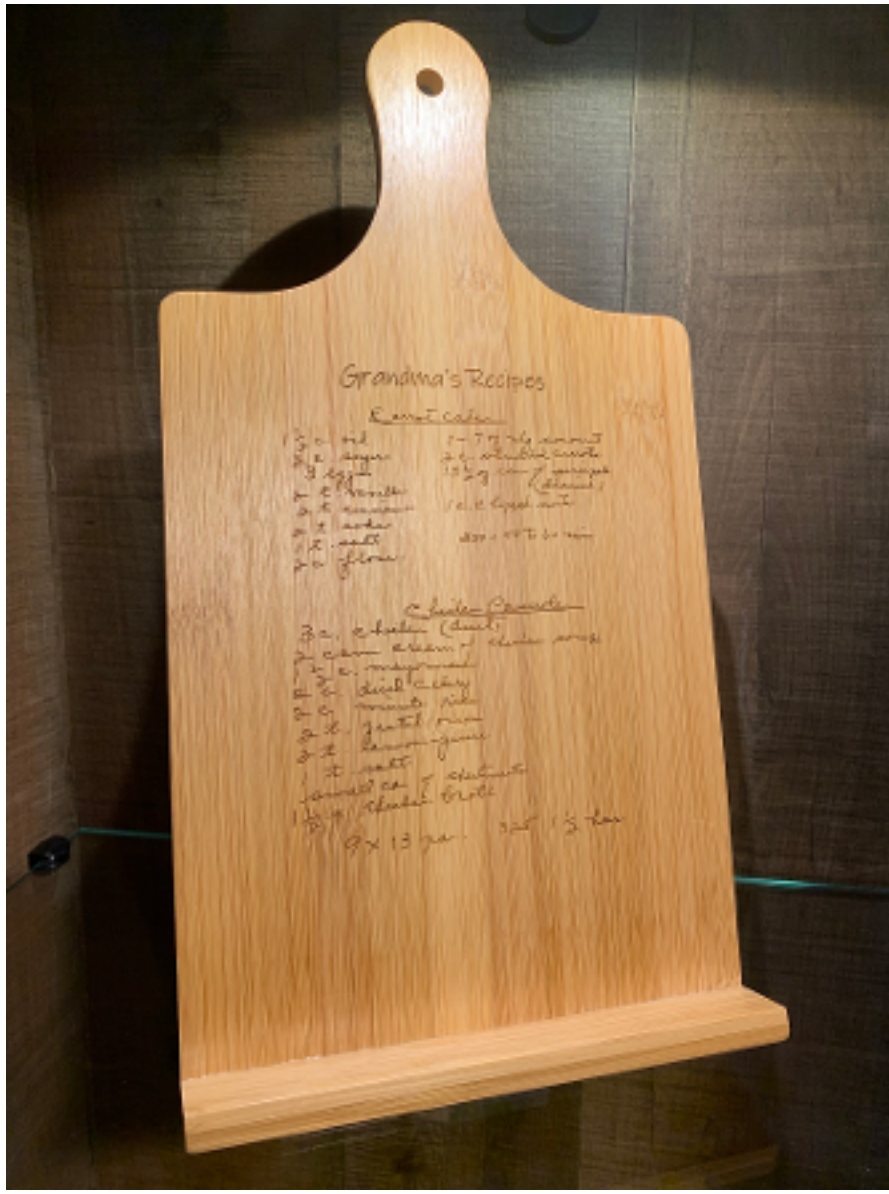 Grandma's Recipes
Carrot Cake
1 ½ c. oil
2 c. sugar
3 eggs
2 t. vanilla
2 t. cinnamon
2 t. soda
1 t. salt
2 c. flour
1 - 7 oz pkg coconut
2 c. shredded carrots
can of
1 c. nuts
min
Chicken Casserole
3 c. chicken (diced)
2 cans cream of chicken soup
c. mayonnaise
2 c. diced celery
2 c. minute rice
2 t. grated onion
2 t. lemon juice
1 t. salt
small can of chestnuts
1 ½ c. chicken broth
9 x 13 pan. 325 1 ½ hrs